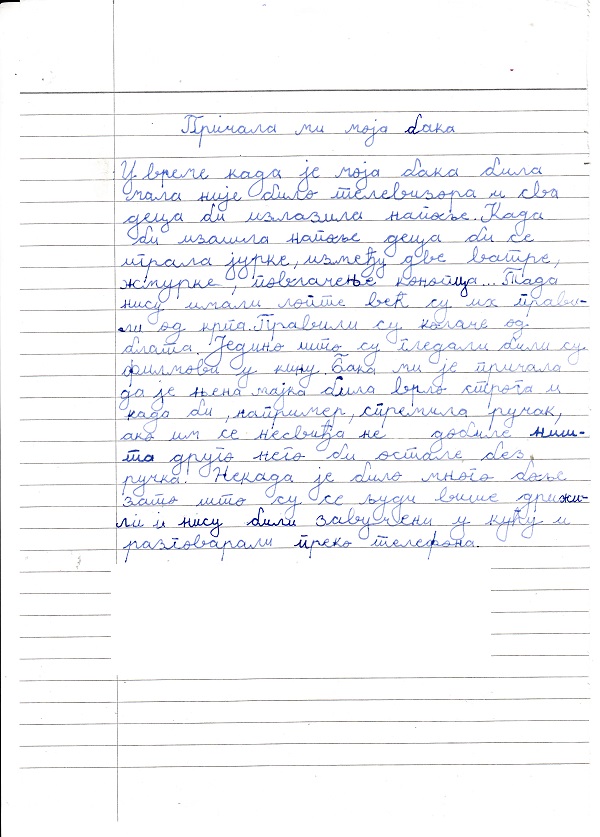 Причала ми моја бака
У време када је моја бака била
мала није било телевизора и сва
деца би излазила напоље. Када
би изашла напоље деца би се
играла јурке, између две ватре,
жмурке, повлачење конопца... Тада
нису имали лопте већ су их прави-
ли од крпа. Правили су колаче од
блата. Једино што су гледали били су
филмови у кину. Бака ми је причала
да је њена мајка била врло строга и
када би, например, спремила ручак,
ако им се несвиђа не добиле ниш-
та друго него би остале без
ручка. Некада је било много боље
зато што су се људи више дружи-
ли и нису били завучени у кућу и
разговарали преко телефона.